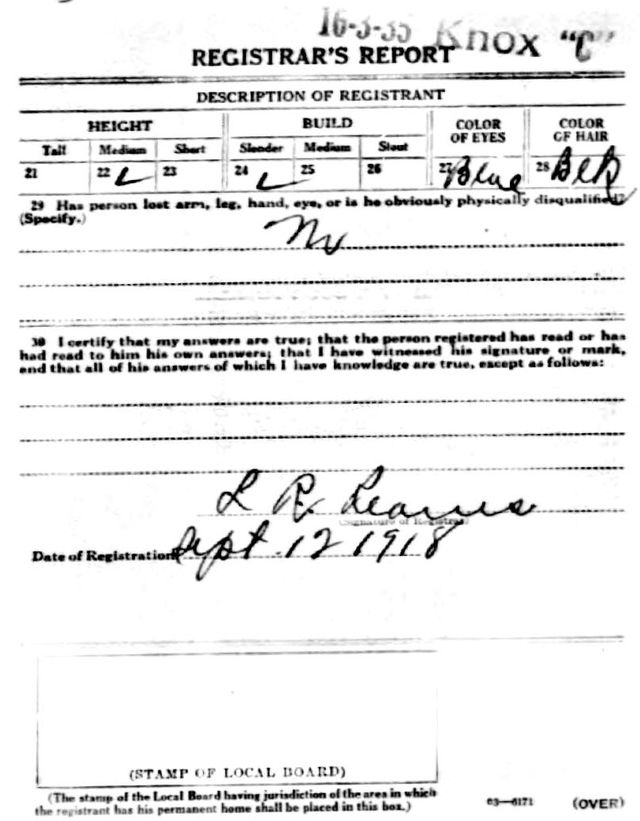 16-3-35 Knox "C"
REGISTRAR'S REPORT
DESCRIPTION OF REGISTRANT
HEIGHT BUILD COLOR OF EYES COLOR OF HAIR
Tall Medium Short Slender Medium Stout
21 22 ✓ 23 24 ✓ 25 26 27 Blue 28 Blk
29 Has person lost arm, leg, hand, eye, or is he obviously physically disqualified?
(Specify.)
No
30 I certify that my answers are true; that the person registered has read or has
had read to him his own answers; that I have witnessed his signature or mark,
and that all of his answers of which I have knowledge are true, except as follows:
L R.
(Signature of Registrar)
Date of Registration Sept. 12 1918
(STAMP OF LOCAL BOARD)
(The stamp of the Local Board having jurisdiction of the area in which
the registrant has his permanent home shall be placed in this box.)
03—6171 (OVER)